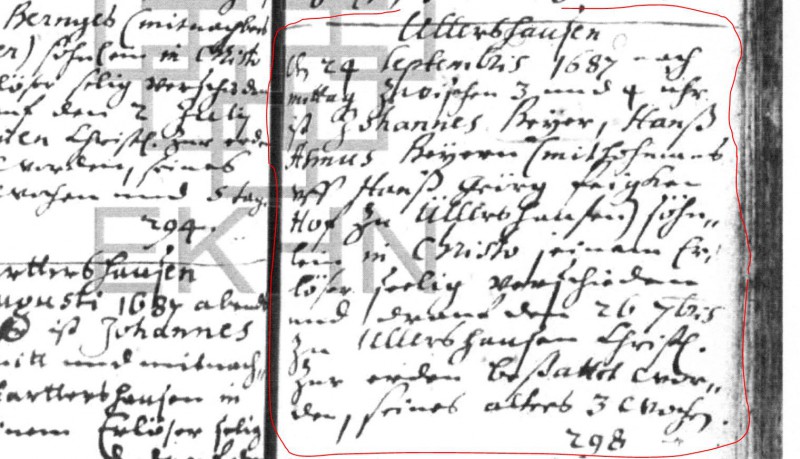 Bernges (mitnachbers
söhnlein in Christo
löser selig verschieden
auf dem 2 July
Christl. zur erde
worden, seines
wochen und 5 tag.
294.
arttershausen
Augusti 1687 abends
ist Johannes
mitt und mitnach„
arttershausen in
inem Erlöser selig
Ützershausen
24 Septembris 1687 nach
mittag zwischen 3 und 4 uhr
ist Johannes Beyer, Hanß
Asmus Beyern (mithofmans
uff Hanß Görg
Hof zu Ützershausen) söhn„
lein in Christo seinem Er„
löser seelig verschieden
und drauf den 26 7bris
zu Ützershausen Christl.
zur erden bestattet wor„
den, seines alters 3 wochen.
298
EKHN